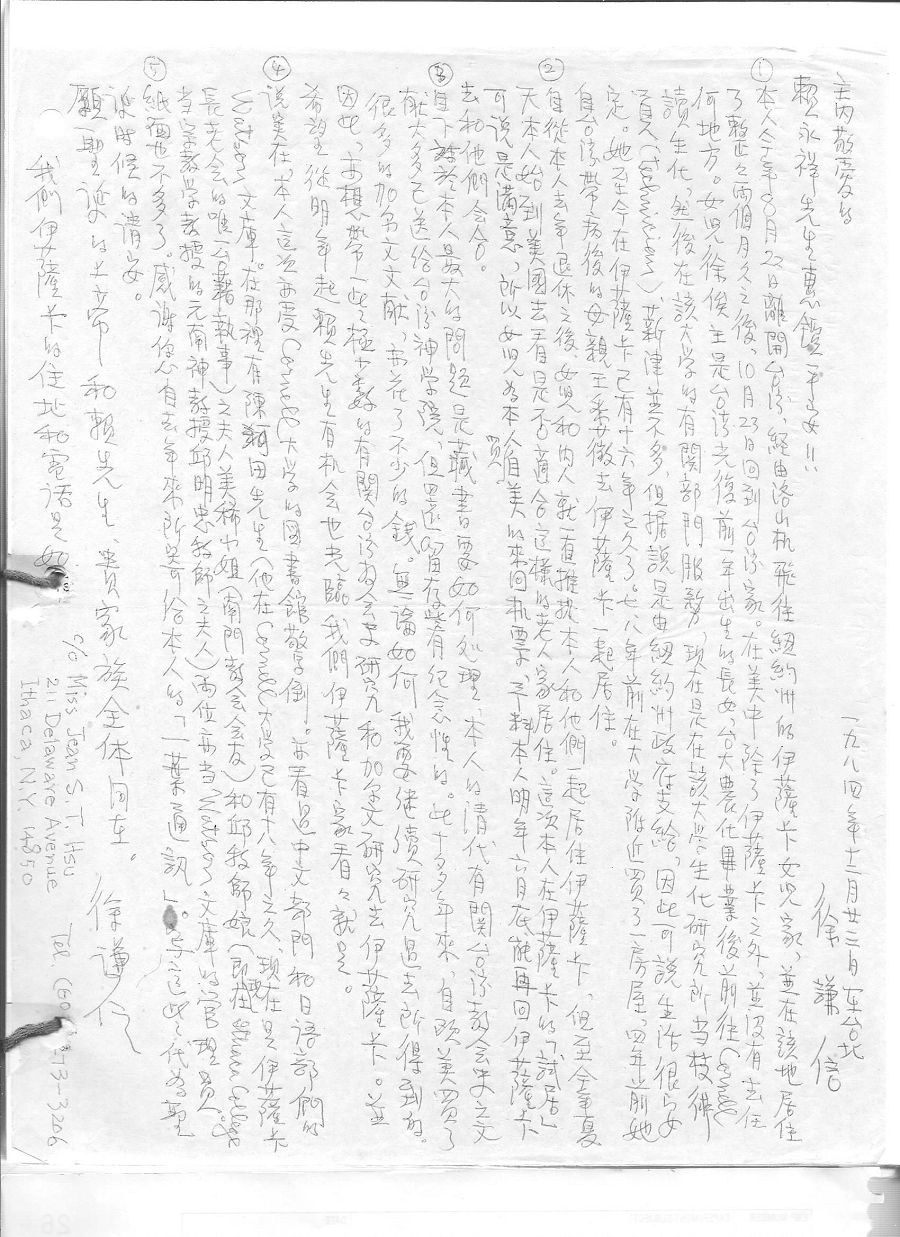 一九八四年十二月廿三日 在台北
徐謙信
主內敬愛的
賴永祥先生惠鑑 平安!!
① 本人今年8月22日離開台灣, 經由洛山机飛往紐約州的伊薩卡女兒家, 並在該地居住
了整整兩個月久之後, 10月23日回到台灣家。在美中除了伊薩卡之外, 並沒有去任
何地方。女兒徐俟主是台湾光復前一年出生的長女, 台大農化畢業後前往Cornell
讀生化, 然後在該大学的有関部門服務, 現在是在該大學生化研究所当技術
員 薪津並不多, 但据說是由紐約州政府支給, 因此可說生活很安
定。她至今在伊薩卡已有十六年之久了。七、八年前在大学附近買了一房屋, 四年前她
自台灣帶病後的母親王秀 去伊薩卡一起居住。
② 自從本人去年退休之後, 女兒和內人就一直推 本人和他們一起居住伊薩卡, 但至今年夏
天本人始到美國去看是不否適合這樣的老人家居住。這次本人在伊薩卡的「試居」
可說是滿意, 所以女兒為本人自買美的來回机票, 予料本人明年六月底能再回伊薩卡
去和他們会合。
③ 目下 於本人最大的問題是藏書要如何処理, 本人的清代有関台湾教会史之文
献大多已送給台湾神学院, 但還留存些有紀念性的。此十多年來, 自欧美買了
很多的加尔文文献, 亦花了不少的錢。無論如何 我要繼續研究過去所得到的。
因此, 亦想帶一些極少數的有関台湾教会史研究和加尔文研究去伊薩卡。並
希望從明年起 賴先生有机会也光臨我們伊薩卡家看々就是。
④ 說実在, 本人這次亦受Cornell大学的図書館敬 倒。亦看過中文部門和日語部門的
Watson文庫。在那裡有陳 田先生(他在Cornell大學已有十八年之久, 現在是伊薩卡
長老会的唯一台籍執事)之夫人美 小姐(南門教会会友)和邱牧師娘(即在 College
当宗教学教授的元南神教授邱明忠牧師之夫人)兩位亦当Watson文庫的管理員。
⑤ 紙面也不多了。感謝您自去年來所 給本人的「一葉通訊」。 這些, 代為聖
誕時候的請安。
願 聖誕的上帝 和賴先生、貴家族全体同在。 徐謙信
(我們伊薩卡的住址和電話是如
c/o Miss Jean S.T. Hsu
211 Delaware Avenue
Ithaca, N.Y. 14850
Tel.